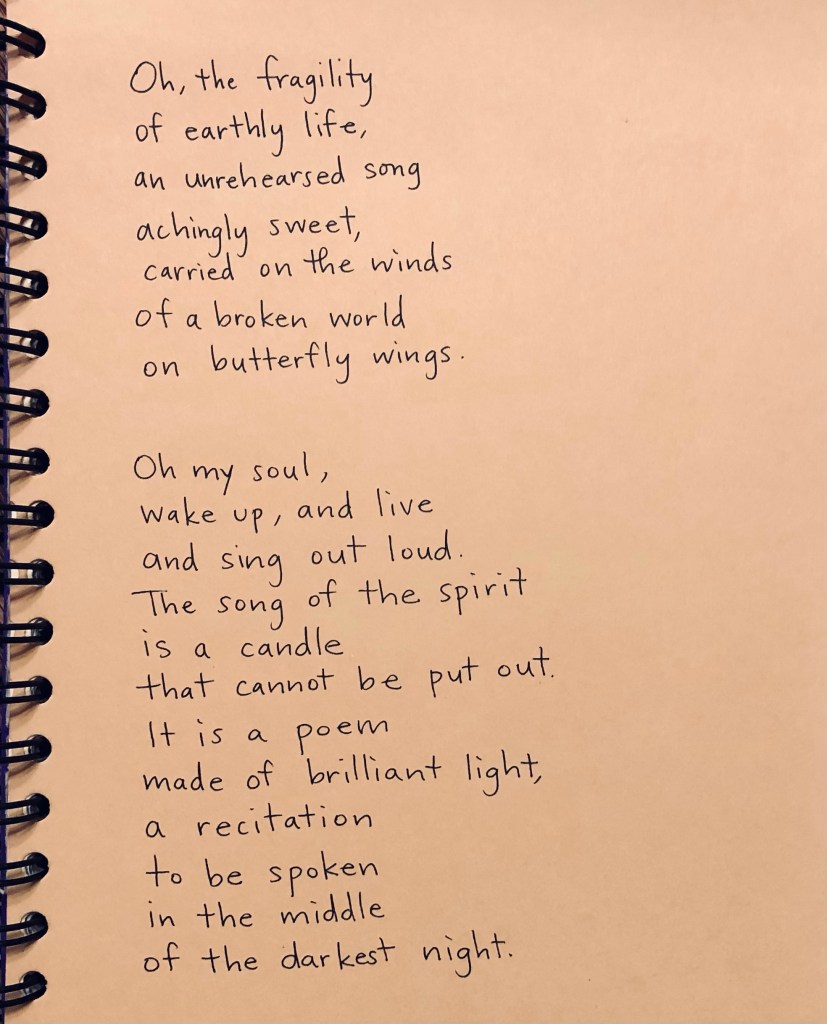 Oh, the fragility
of earthly life,
an unrehearsed song
achingly sweet,
carried on the winds
of a broken world
on butterfly wings.
Oh my soul,
wake up, and live
and sing out loud.
The song of the spirit
is a candle
that cannot be put out.
It is a poem
made of brilliant light,
a recitation
to be spoken
in the middle
of the darkest night.